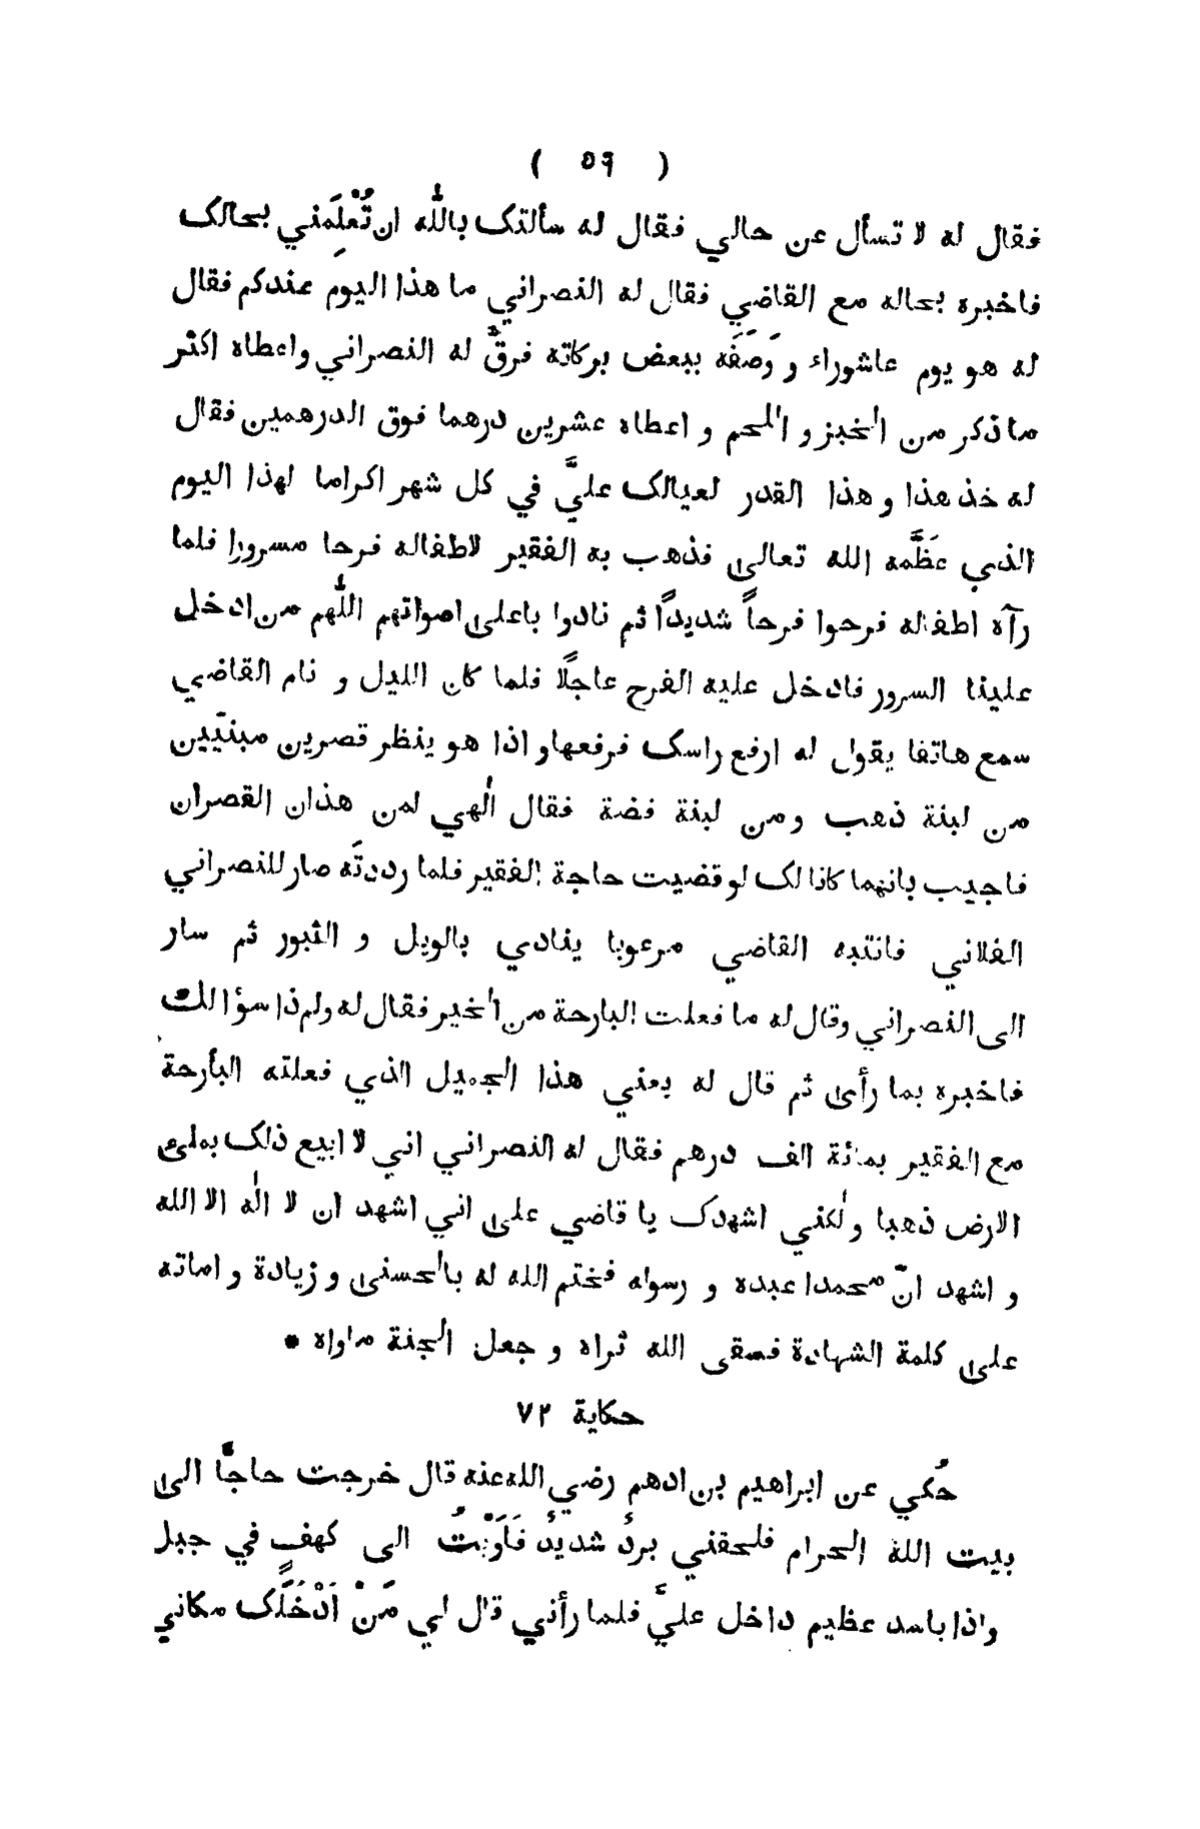 ( ٥٦ )
فقال له لا تسأل عن حالي فقال له سألتک بالله ان تُعْلِمَني بحالک
فاخبره بحاله مع القاضي فقال له النصراني ما هذا اليوم عندكم فقال
له هو يوم عاشوراء و وَصَفَه ببعض بركاته فرقَّ له النصراني واعطاه اكثر
ما ذكر من الخبز و اللحم و اعطاه عشرين درهما فوق الدرهمين فقال
له خذ هذا و هذا القدر لعيالک عليَّ في كل شهر اكراما لهذا اليوم
الذي عَظَّمه الله تعالى فذهب به الفقير لاطفاله فرحا مسرورا فلما
رآه اطفاله فرحوا فرحاً شديداً ثم نادوا باعلى اصواتهم اللّٰهم من ادخل
علينا السرور فادخل عليه الفرح عاجلًا فلما كان الليل و نام القاضي
سمع هاتفا يقول له ارفع راسک فرفعها و اذا هو ينظر قصرين مبنيّين
من لبنة ذهب و من لبنة فضة فقال الٰهي لمن هذان القصران
فاجيب بانهما كانا لک لو قضيت حاجة الفقير فلما رددتَه صار للنصراني
الفلاني فانتبه القاضي مرعوبا ينادي بالويل و الثبور ثم سار
الى النصراني وقال له ما فعلت البارحة من الخير فقال له ولم ذا سؤالك
فاخبره بما رأى ثم قال له بعني هذا الجميل الذي فعلته البأرحة
مع الفقير بمائة الف درهم فقال له النصراني اني لا ابيع ذلک بملئ
الارض ذهبا و لٰكني اشهدک يا قاضي على اني اشهد ان لا الٰه الا الله
و اشهد انّ محمدا عبده و رسوله فختم الله له بالحسنى و زيادة و اماته
على كلمة الشهادة فسقى الله ثراه و جعل الجنة ماواه *
حكاية ٧٢
حُكي عن ابراهيم بن ادهم رضي الله عنه قال خرجت حاجًّا الى
بيت الله الحرام فلحقني بردٌ شديدٌ فَاَوَيْتُ الى كهفٍ في جبل
واذا باسد عظيم داخل عليَّ فلما رأني قال لي مَنْ اَدْخَلَک مكاني